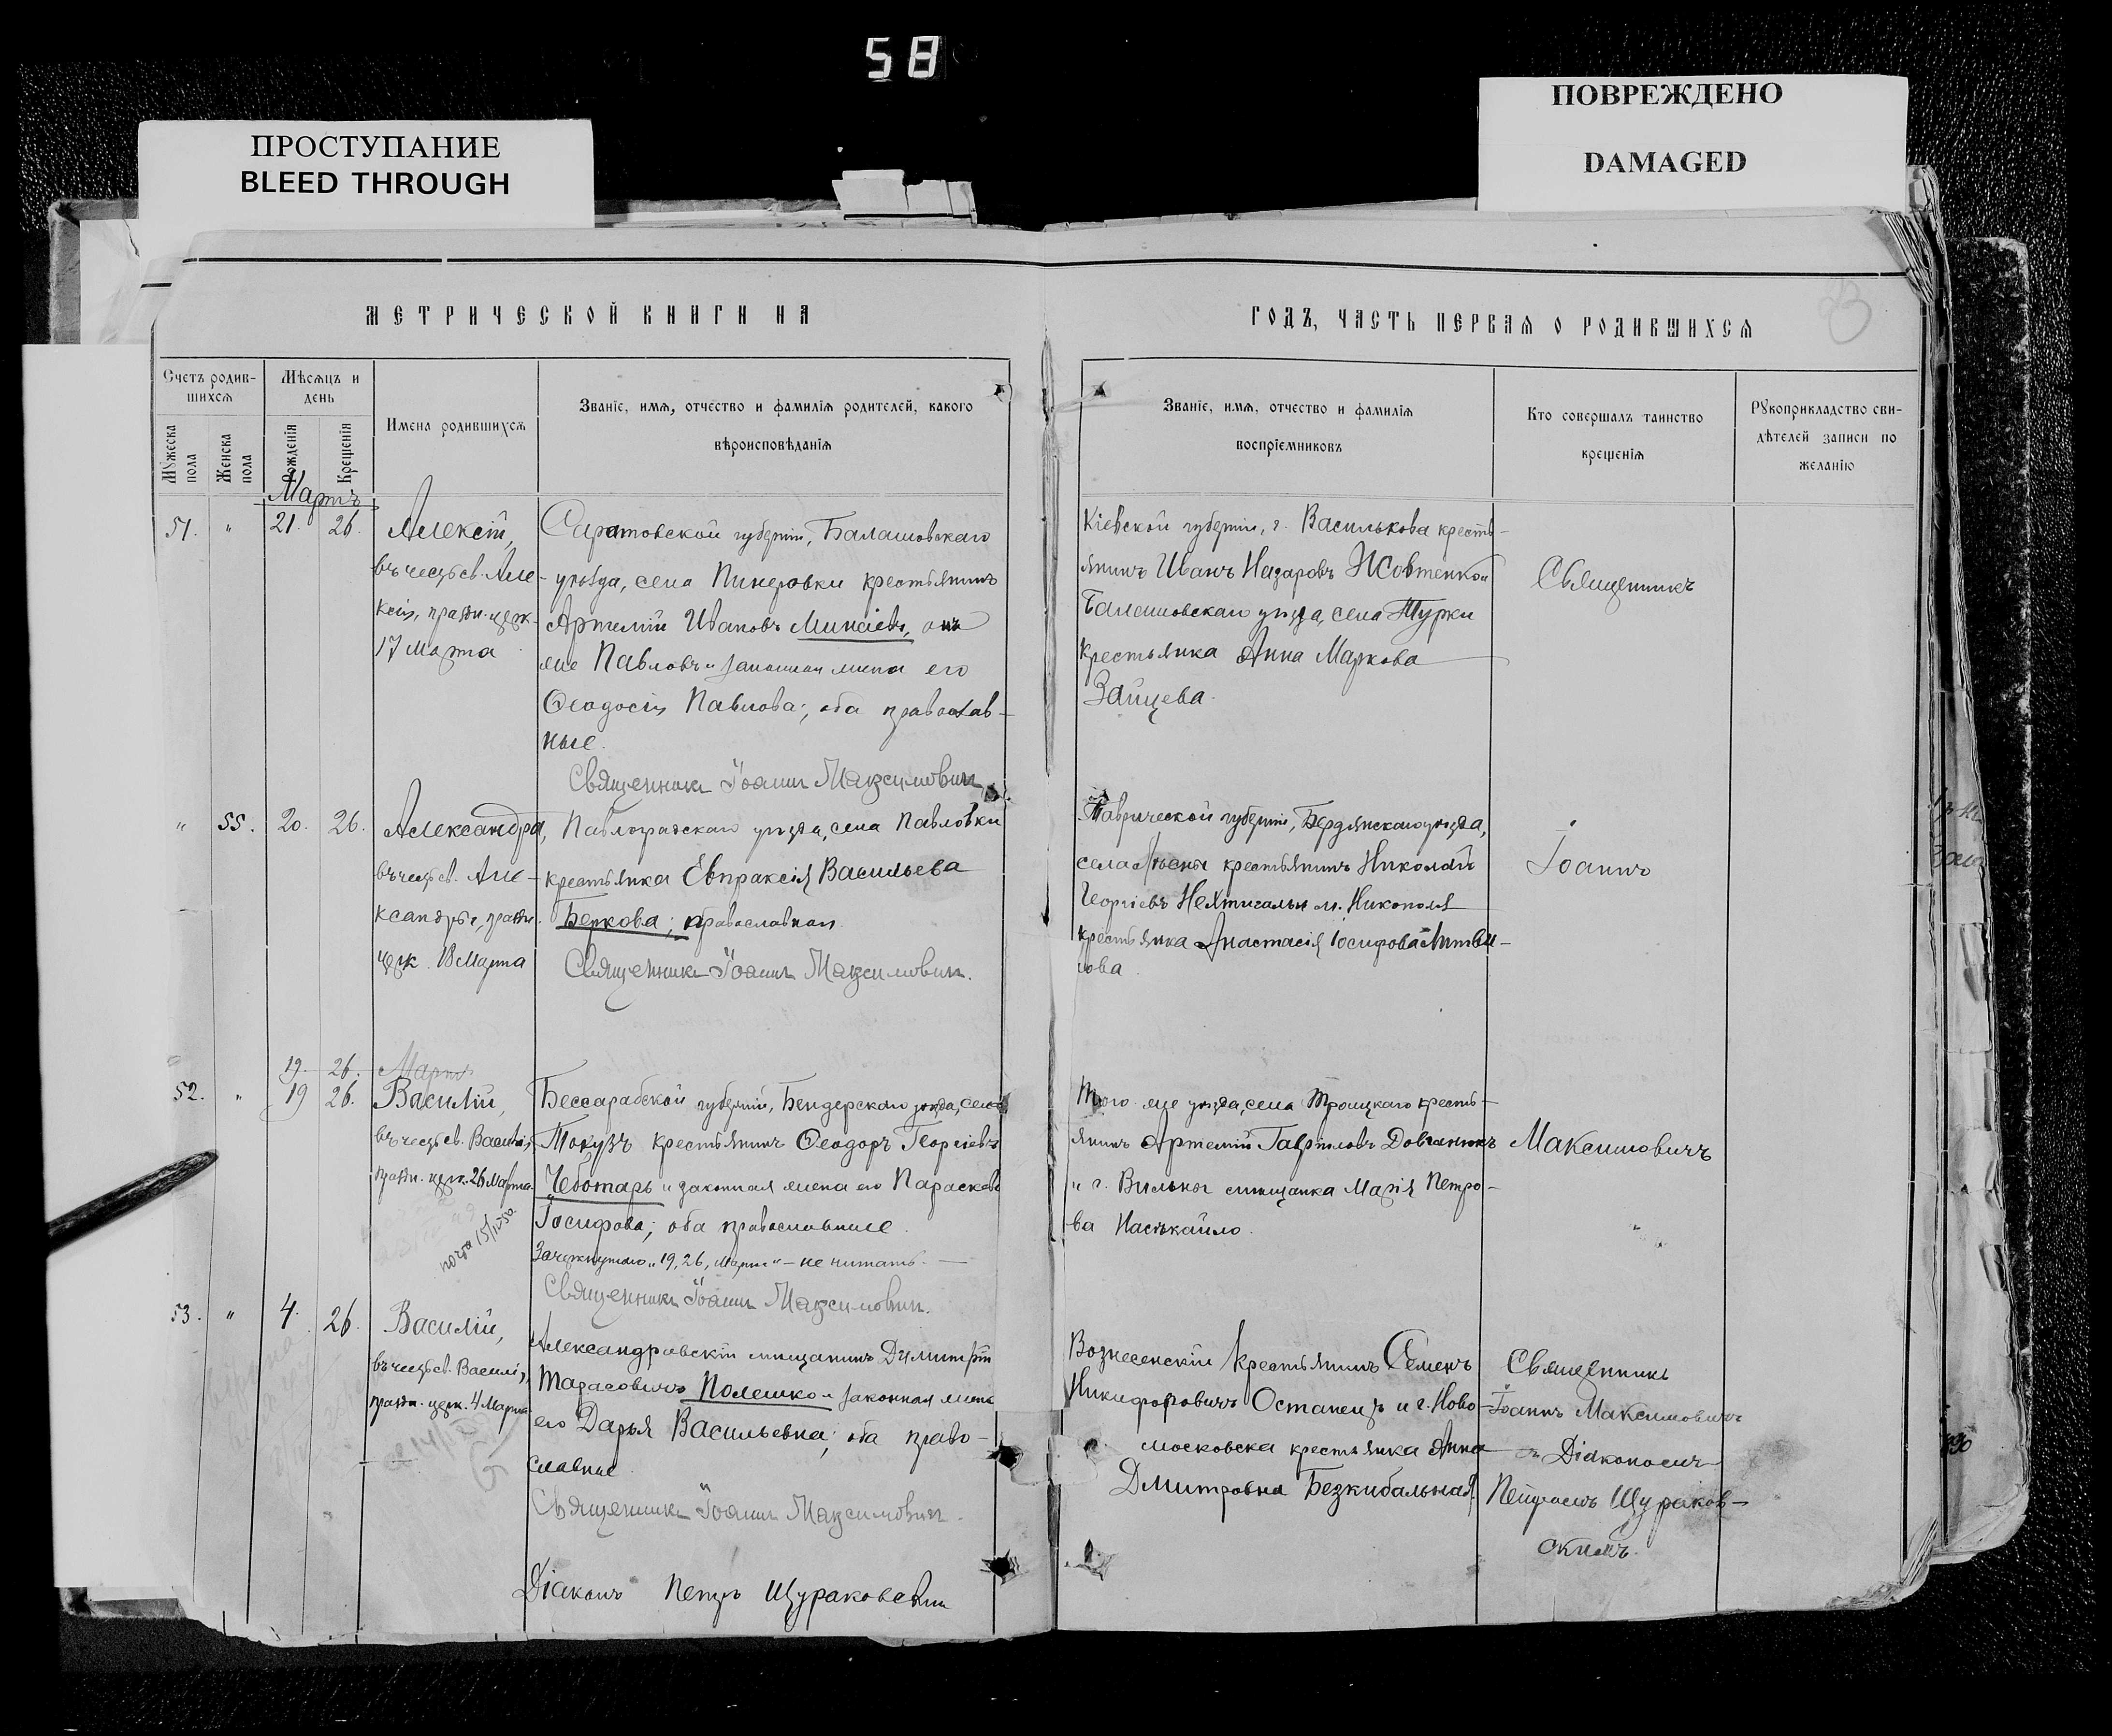 58
ПРОСТУПАНИЕ
BLEED THROUGH
ПОВРЕЖДЕНО
DAMAGED
МЕТРИЧЕСКОЙ КНИГИ НА
Счетъ родив-
шихся
Мѣсяцъ и
день
Мужеска
пола
Женска
пола
Рожденія
Крещенія
Имена родившихся
Званіе, имя, отчество и фамилія родителей, какого
вѣроисповѣданія
Мартъ
51. " 21. 26.
Алексій,
въ честь св. Але-
ксія, праздн. церк.
17 Марта
Саратовской губерніи, Балашовскаго
уѣзда, села Пинеровки крестьянинъ
Артемій Ивановъ онъ
же Павловъ и законная жена его
Ѳеодосія Павлова; оба православ-
ные.
Священникъ Іоаннъ Максимович.
" 55. 20. 26.
Александра,
въ честь св. Але-
ксандры, праздн.
церк. Марта
Павлоградскаго уѣзда, села Павловки
крестьянка Евпраксія Васильева
Беркова; православная.
Священникъ Іоаннъ Максимович.
19. 26. Марта
52. " 19 26.
Василій,
въ честь св. Василія,
праздн. церк. 26 Марта
Бессарабской губерніи, Бендерскаго уѣзда, села
Токузъ крестьянинъ Ѳеодоръ Георгіевъ
Чеботарь и законная жена его Параскева
Іосифова; оба православные.
Зачеркнутаго "19, 26, Марта" - не читать.
Священникъ Іоаннъ Максимович.
53. " 4. 26.
Василій,
въ честь св. Василія,
праздн. церк. 4 Марта
Александровскій мѣщанинъ Димитрій
Тарасовичъ Полешко и законная жена
его Дарья Васильевна; оба право-
славные
Священникъ Іоаннъ Максимович.
Діаконъ Петръ Щураковскій
ГОДЪ, ЧАСТЬ ПЕРВАЯ О РОДИВШИХСЯ
Званіе, имя, отчество и фамилія
воспріемниковъ
Кто совершалъ таинство
крещенія
Рукоприкладство сви-
дѣтелей записи по
желанію
Кіевской губерніи, г. Василькова кресть-
янинъ Иванъ Назаровъ Жовтенко и
Балашовскаго уѣзда, села Турки
крестьянка Анна Маркова
Зайцева.
Священникъ
Таврической губерніи, Бердянскаго уѣзда,
села крестьянинъ Николай
Георгіевъ и м. Никополя
крестьянка Анастасія Іосифова Литви-
нова.
Іоаннъ
Того же уѣзда, села Троицкаго кресть-
янинъ Артемій Гавріиловъ Довганюкъ
и г. Вильны мѣщанка Марія Петро-
ва
Максимовичъ
Вознесенскій крестьянинъ Семенъ
Никифоровичъ Останецъ и г. Ново-
московска крестьянка Анна
Дмитровна Безкибальная.
Священникъ
Іоаннъ Максимовичъ
съ Діакономъ
Петромъ Щураков-
скимъ.